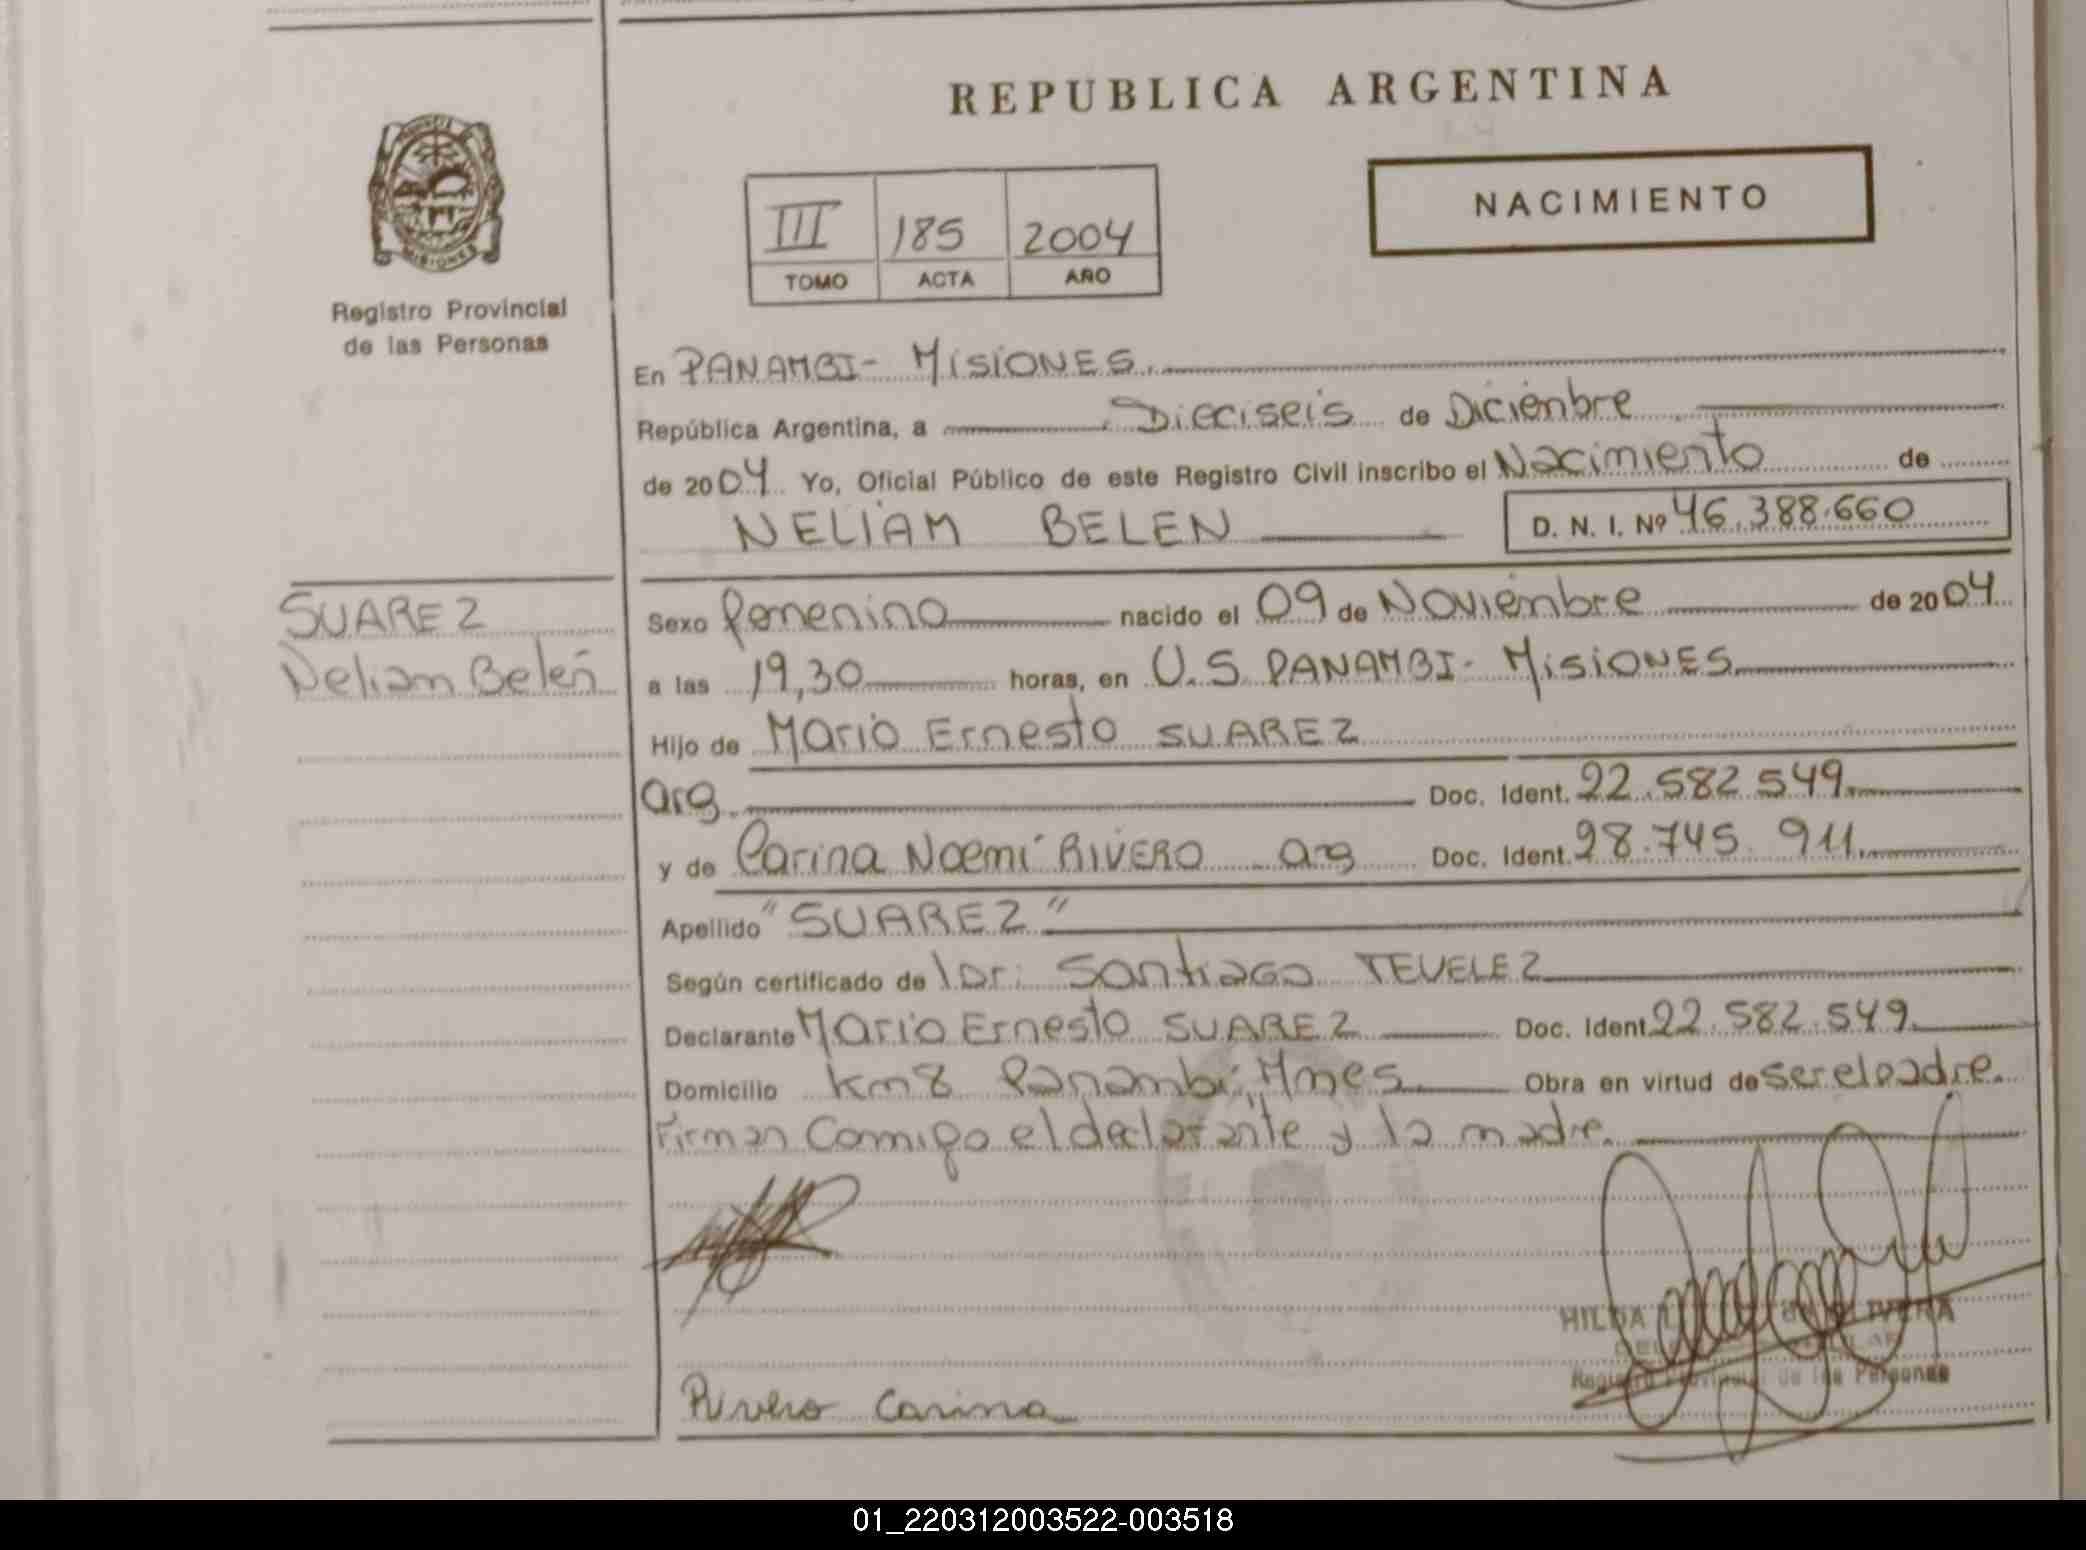 REPUBLICA ARGENTINA
NACIMIENTO
III 185 2004
TOMO ACTA AÑO
MISIONES
Registro Provincial
de las Personas
En PANAMBI - MISIONES.
República Argentina, a Dieciseis de Diciembre
de 2004 Yo, Oficial Público de este Registro Civil inscribo el Nacimiento de
NELIAM BELEN D. N. I. Nº 46.388.660
SUAREZ
Neliam Belen
Sexo femenino nacido el 09 de Noviembre de 2004
a las 19,30 horas, en U.S. PANAMBI - MISIONES
Hijo de Mario Ernesto SUAREZ
arg. Doc. Ident. 22.582.549
y de Carina Noemi RIVERO arg Doc. Ident. 28.745.911
Apellido "SUAREZ"
Según certificado de Santiago TEVELEZ
Declarante Mario Ernesto SUAREZ Doc. Ident. 22.582.549
Domicilio Km 8 Panambi, Mnes Obra en virtud de ser el padre.
Firman Conmigo el declarante y la madre.
HILDA
Registro Provincial de las Personas
Rivero Carina
01_220312003522-003518